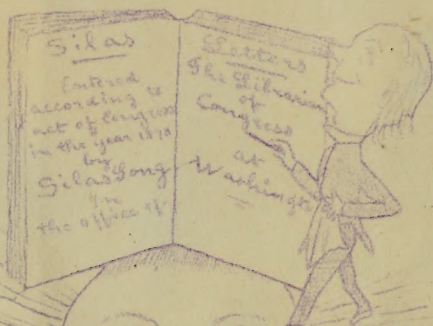 Silas
Entered
according to
act of Congress
in the year 1870
by
Silas Long
In
the office of
Letters
The Librarian
of
Congress
at
Washington